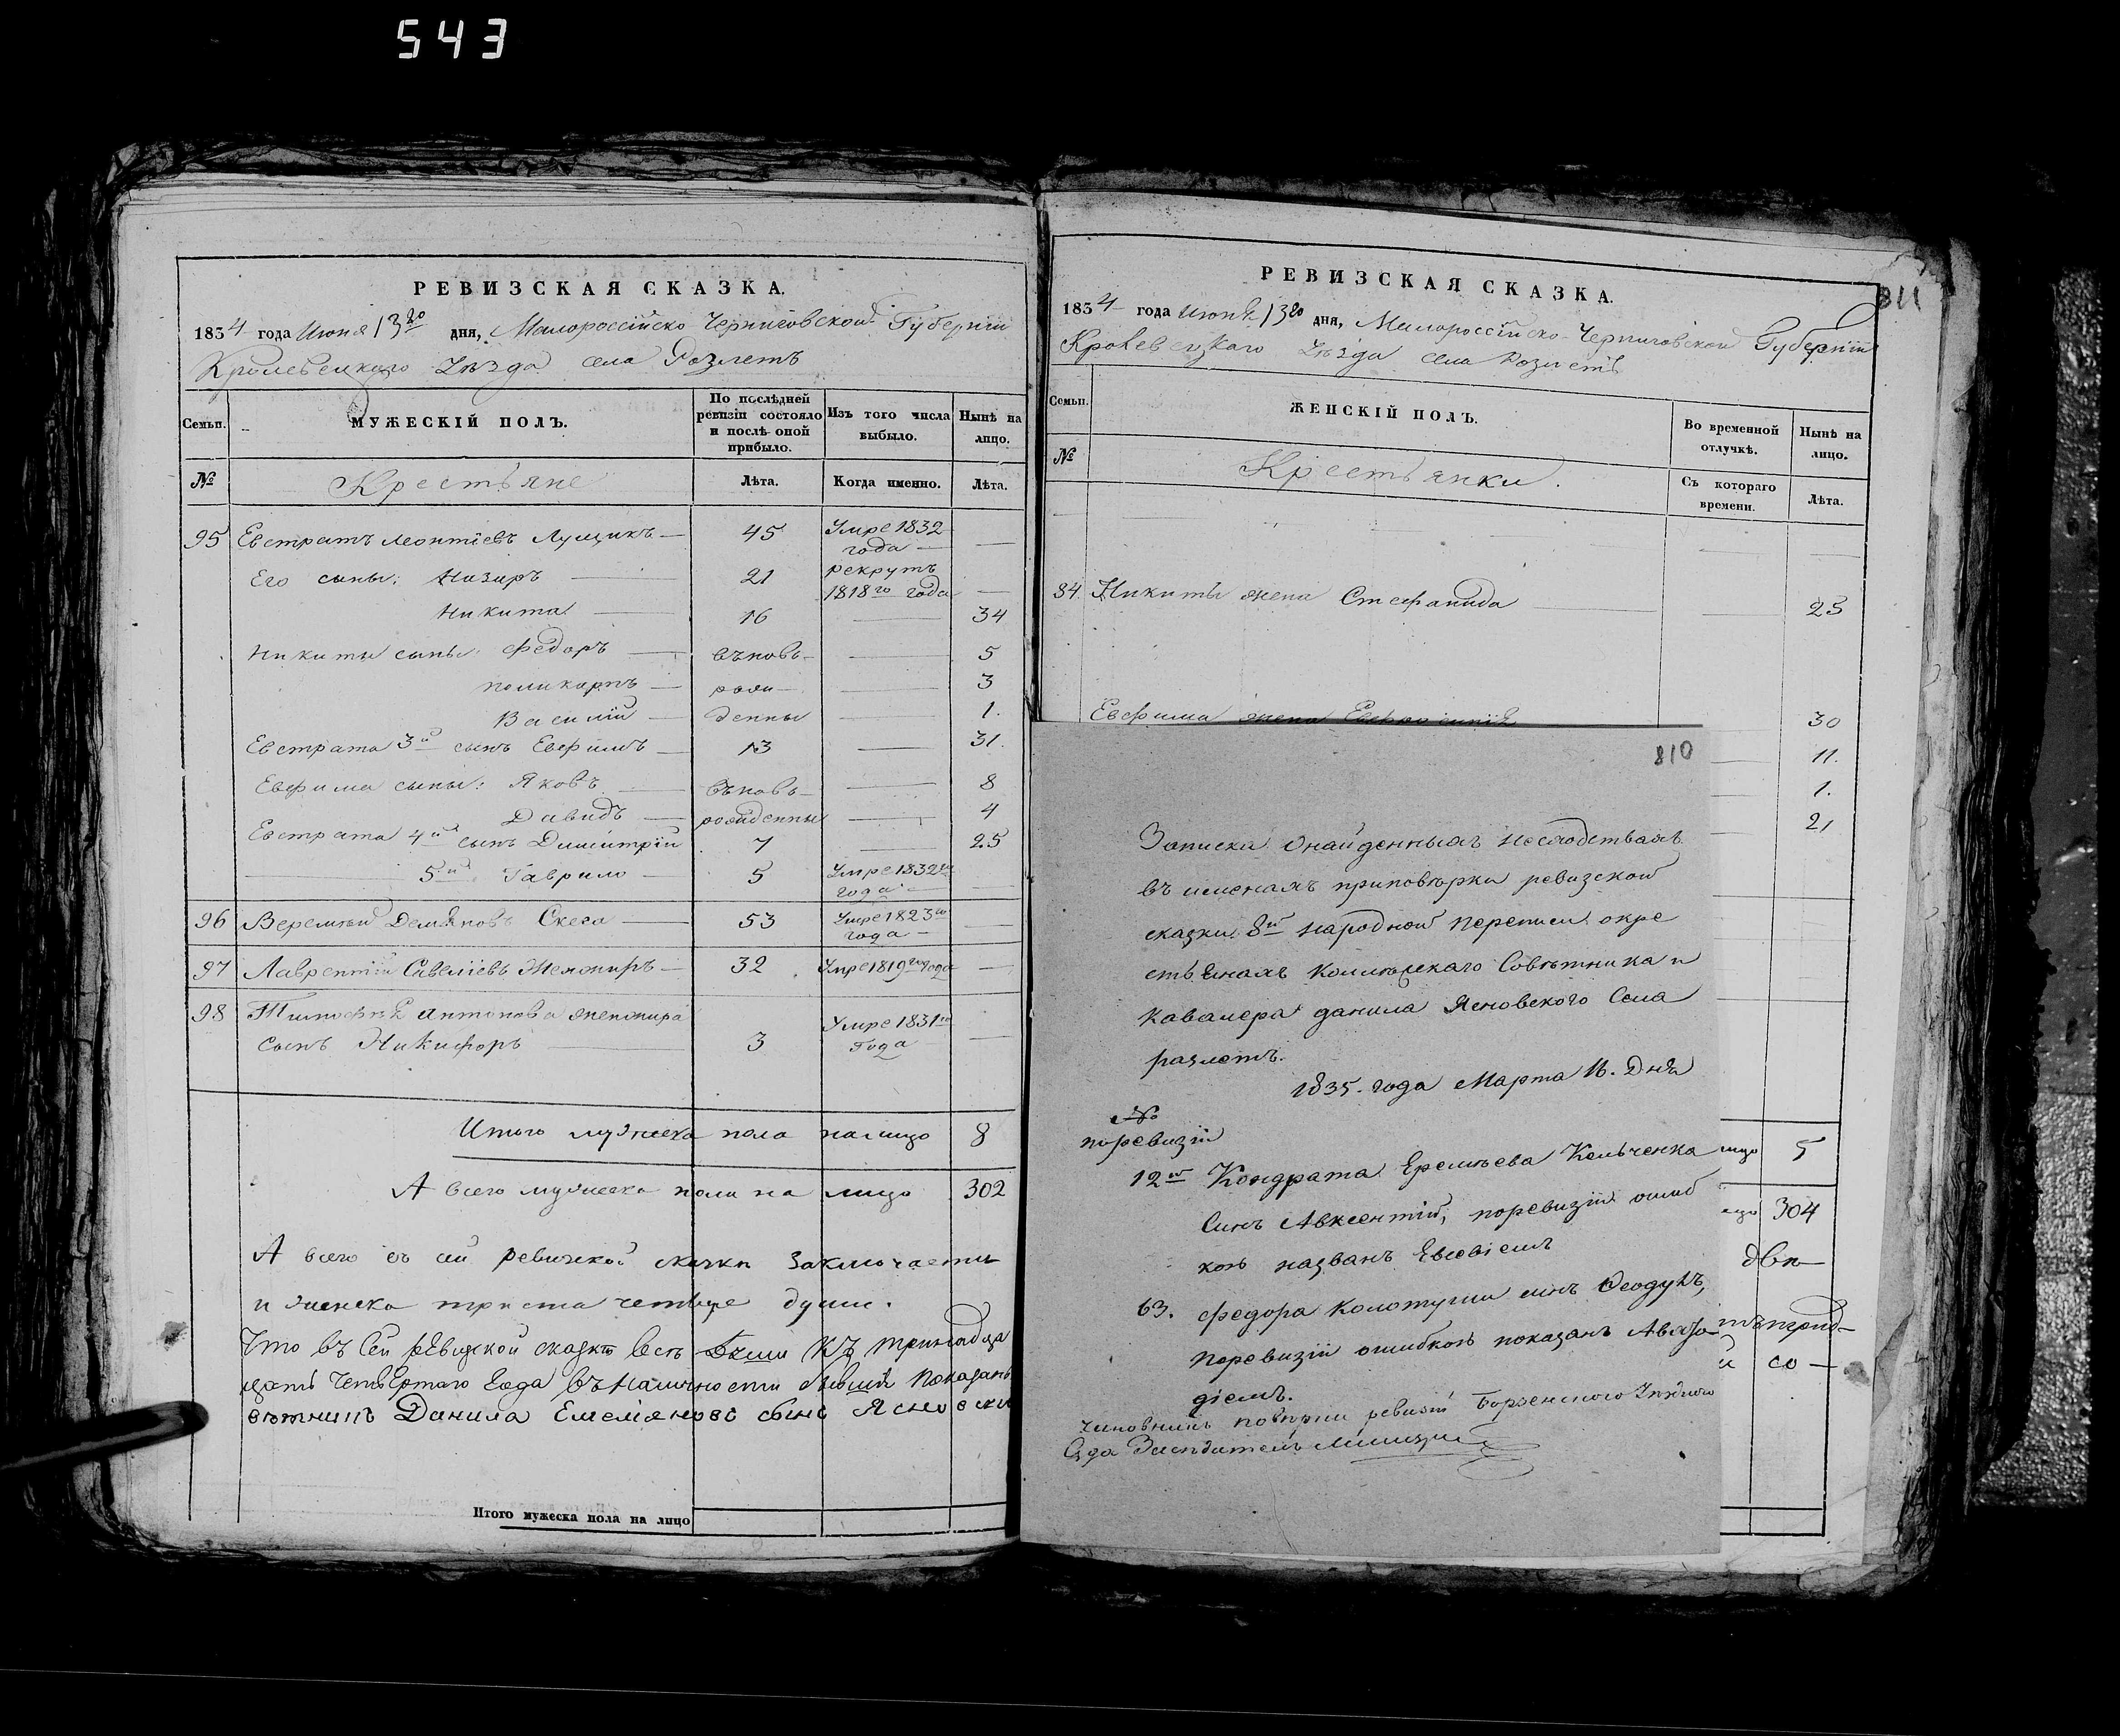 543
РЕВИЗСКАЯ СКАЗКА.
1834 года Июня 13го дня, Малороссійско Черниговской Губерніи
Кролевецкаго Уѣзда села Розлетъ
Семьи.
МУЖЕСКІЙ ПОЛЪ.
По послѣдней ревизіи состояло и послѣ оной прибыло.
Изъ того числа выбыло.
Нынѣ на лицо.
№
Крестьяне
Лѣта.
Когда именно.
Лѣта.
95 Евстратъ Леонтіевъ Лущикъ — 45 Умре 1832 года — —
Его сыны: Назаръ — 21 рекрутъ 1818го года —
Никита — 16 — 34
Никиты сыны: Федоръ — въновь — — 5
Поликарпъ — рож — — 3
Василій — денны — 1.
Евстрата 3й сынъ Евфимъ — 13 — 31.
Евфима сыны: Яковъ — въновь — — 8
Давидъ — рожденны — 4
Евстрата 4й сынъ Димитрій 7 — 25
— 5й Гаврило — 5 Умре 1832го года —
96 Веремѣй Демяновъ Скега — 53 Умре 1823го года — —
97 Лаврентій Савеліевъ Женжиръ — 32 Умре 1819го года —
98 Тимофея Антонова Женжира
сынъ Никифоръ — 3 Умре 1831го года —
Итого мужеска пола налицо 8
А всего мужеска пола на лицо 302
А всего въ сей ревизской сказки заключаетъ
и женска триста четыре души.
Что въ Сей ревизской сказкѣ всѣ бывши къ тринадца
цать четвертаго Года въ Наличности бывшія показаны
вѣтникъ Данила Емеліяновъ сынъ Ясновски
Итого мужеска пола на лицо
811
РЕВИЗСКАЯ СКАЗКА.
1834 года Июня 13го дня, Малороссійско-Черниговской Губерніи
Кролевецкаго Уѣзда села Розлетъ
Семьи.
ЖЕНСКІЙ ПОЛЪ.
Во временной отлучкѣ.
Нынѣ на лицо.
№
Крестьянки.
Съ котораго времени.
Лѣта.
84. Никиты жена Стефанида — 25
Евфима жена 30
11.
1.
21
810
Записка онайденныхъ несходствахъ
въ именахъ приповѣрки ревизской
сказки 8й народной переписи окре
стьянахъ Коллежскаго Совѣтника и
Кавалера данила Ясновского Села
разлетъ.
1835. года Марта 16. Дня
№
поревизіи
12й Кондрата Еремѣева Кельченка
Синъ Авксентій, поревизіи ошиб
кою названъ Евсевіемъ
63. Федора Коломуши синъ Феодулъ,
поревизіи ошибкою показанъ Авя
діемъ.
Чиновникъ повѣрки ревизій Борзенского Уѣзднаго
Суда Засѣдатель
лицо 5
304
двѣ
со —